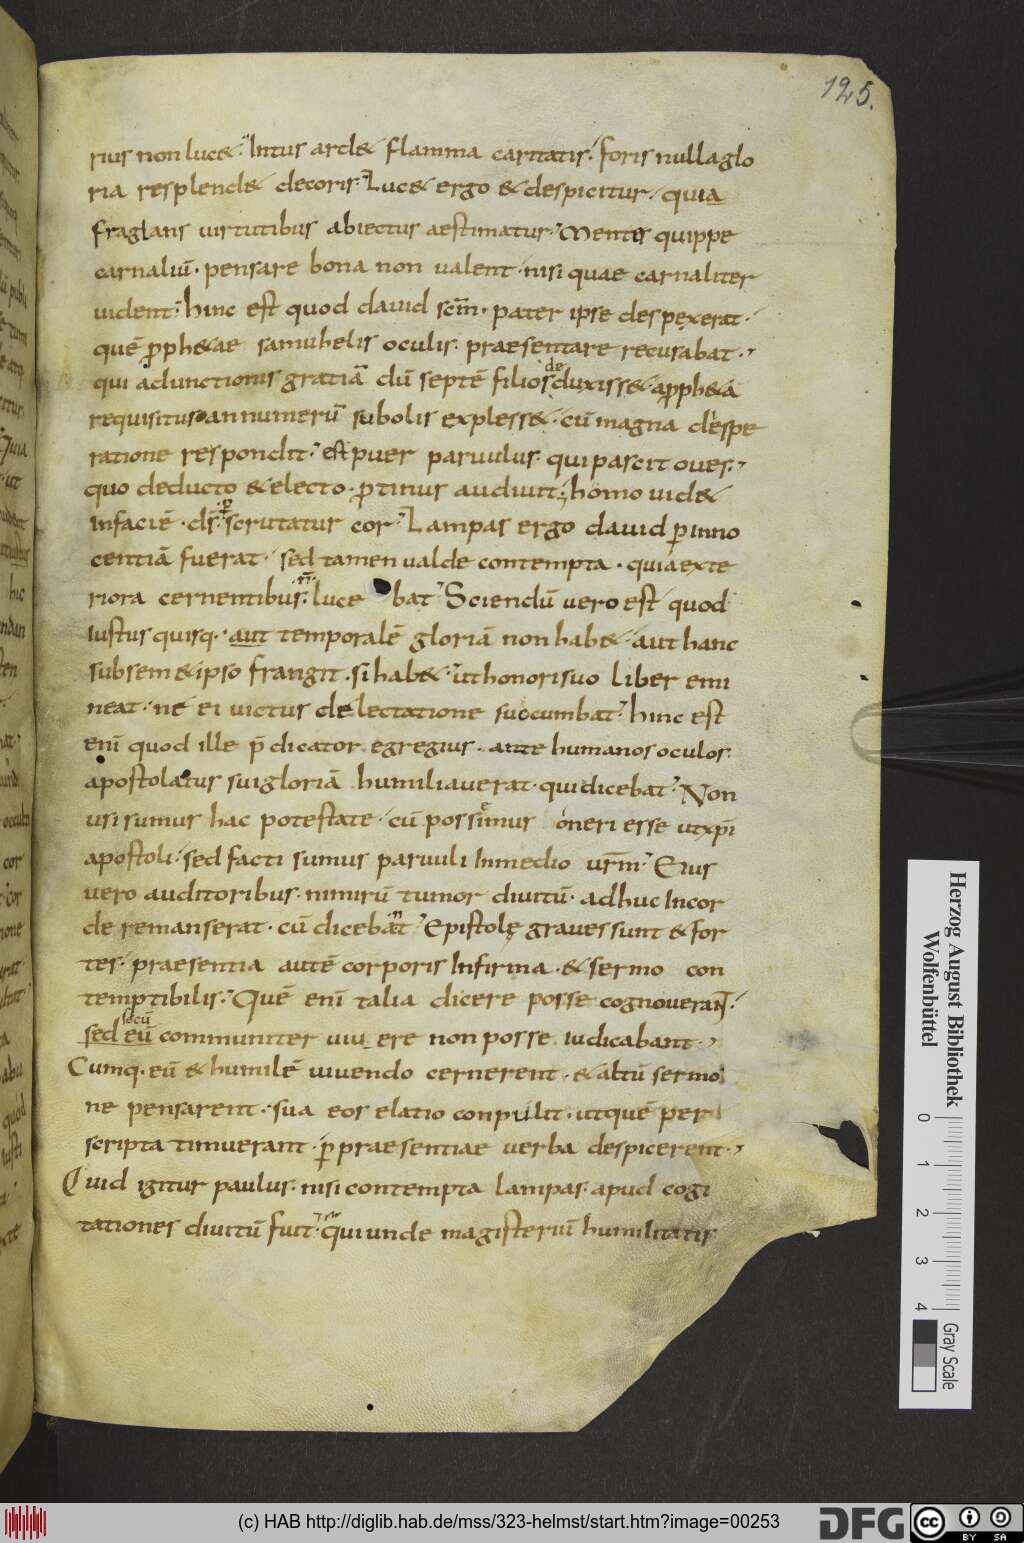 125.
rius non luc&. Intus ard& flamma caritatis. foris nulla glo
ria resplend& decoris. Luc& ergo & despicitur. quia
fraglans uirtutibus abiectus aestimatur. Mentes quippe
carnaliū. pensare bona non ualent. nisi quae carnaliter
uident. hinc est quod dauid scm̄. pater ipse despexerat.
quē ꝓph&ae samuhelis oculis. praesentare recusabat.
qui adunctionis gratiā dū septē filios deduxiss&. a ꝓph&a
requisitus an numerū subolis expless&. cū magna despe
ratione respondit. est puer paruulus. qui pascit oues.
quo deducto & electo. ꝓtinus audiuit. homo uid&
in faciē. ds̄ scrutatur cor. Lampas ergo dauid ꝑ inno
centiā fuerat. sed tamen ualde contempta. quia exte
riora cernentibus. n̄ luce bat. Sciendū uero est quod
iustus quisq. aut temporalē gloriā non hab&. aut hanc
sub sem&ipso frangit. si hab&. ut honori suo liber emi
neat. ne ei uictus delectatione succumbat. hinc est
enī quod ille p̄dicator egregius. ante humanos oculos.
apostolatus sui gloriā humiliauerat. qui dicebat. Non
usi sumus hac potestate. cū possemus oneri esse ut xp̄i
apostoli. sed facti sumus paruuli in medio ur̄m. Eius
uero auditoribus. nimirū tumor diuitū. adhuc in cor
de remanserat. cū dicebant. Epistolę graues sunt & for
tes. praesentia autē corporis infirma. & sermo con
temptibilis. Quē enī talia dicere posse cognouerant.
secū
sed eū communiter uiu ere non posse iudicabant.
Cumq. eū & humilē uiuendo cernerent. & altū sermo
ne pensarent. sua eos elatio conpulit. ut quē per
scripta timuerant. ꝑ praesentiae uerba despicerent.
Quid igitur paulus. nisi contempta lampas. apud cogi
tationes diuitū fuit. qui unde magisteriū humilitatis
Herzog August Bibliothek
Wolfenbüttel
0 1 2 3 4
Gray Scale
(c) HAB http://diglib.hab.de/mss/323-helmst/start.htm?image=00253
DFG
cc BY SA